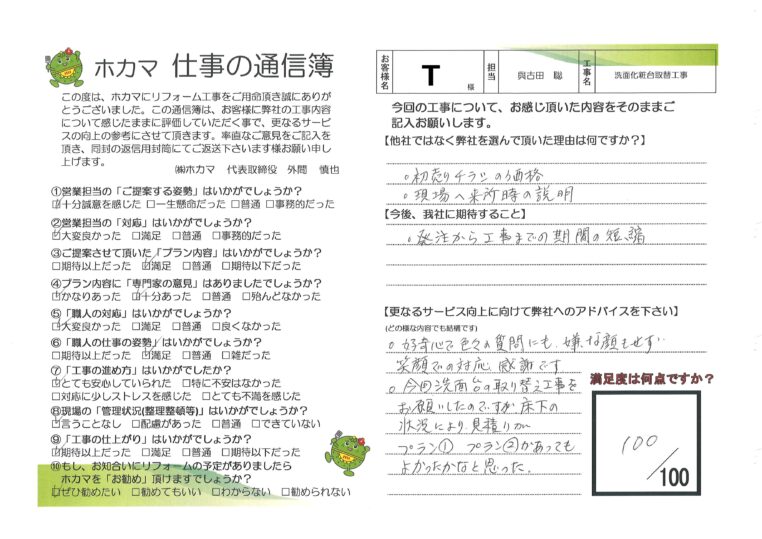 ホカマ 仕事の通信簿
この度は、ホカマにリフォーム工事をご用命頂き誠にありが
とうございました。この通信簿は、お客様に弊社の工事内容
について感じたままに評価していただく事で、更なるサービ
スの向上の参考にさせて頂きます。率直なご意見をご記入を
頂き、同封の返信用封筒にてご返送下さいます様お願い申し
上げます。
㈱ホカマ 代表取締役 外間 慎也
①営業担当の「ご提案する姿勢」はいかがでしょうか?
☑十分誠意を感じた □一生懸命だった □普通 □事務的だった
②営業担当の「対応」はいかがでしょうか?
☑大変良かった □満足 □普通 □事務的だった
③ご提案させて頂いた「プラン内容」はいかがでしょうか?
□期待以上だった ☑満足 □普通 □期待以下だった
④プラン内容に「専門家の意見」はありましたでしょうか?
□かなりあった ☑十分あった □普通 □殆んどなかった
⑤「職人の対応」はいかがでしょうか?
☑大変良かった □満足 □普通 □良くなかった
⑥「職人の仕事の姿勢」はいかがでしょうか?
□期待以上だった ☑満足 □普通 □雑だった
⑦「工事の進め方」はいかがでしたか?
☑とても安心していられた □特に不安はなかった
□対応に少しストレスを感じた □とても不満を感じた
⑧現場の「管理状況(整理整頓等)」はいかがでしょうか?
☑言うことなし □配慮があった □普通 □できていない
⑨「工事の仕上がり」はいかがでしょうか?
☑期待以上だった □満足 □普通 □期待以下だった
⑩もし、お知合いにリフォームの予定がありましたら
ホカマを「お勧め」頂けますでしょうか?
☑ぜひ勧めたい □勧めてもいい □わからない □勧められない
お客様名 T 様 担当 與古田 聡 工事名 洗面化粧台取替工事
今回の工事について、お感じ頂いた内容をそのままご
記入お願いします。
【他社ではなく弊社を選んで頂いた理由は何ですか?】
○初売りチラシの価格
○現場へ来所時の説明
【今後、我社に期待すること】
○発注から工事までの期間の短縮
【更なるサービス向上に向けて弊社へのアドバイスを下さい】
(どの様な内容でも結構です)
○好奇心で色々の質問にも、嫌な顔もせず
笑顔での対応、感謝です
○今回洗面台の取り替え工事を
お願いしたのですが床下の
状況により見積りが
プラン① プラン②があっても
よかったかなと思った。
満足度は何点ですか?
100
/100